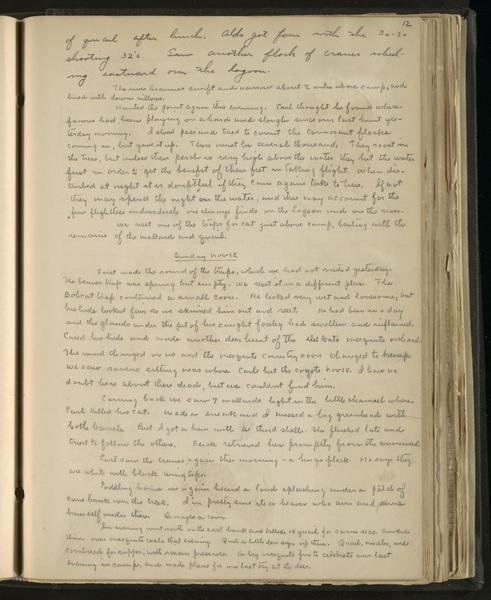 12
of quail after lunch. Aldo got four with the 30-30
shooting 32's. Saw another flock of cranes wheel-
ing eastward over the lagoon.
The river becomes swift and narrow about 2 miles above camp, and
lined with down willows.
Hunted the point again this evening. Carl thought he found where
fawns had been playing on a burned slough since our last hunt yes-
terday morning. I stood pass and tried to count the cormorant flocks
coming in, but gave it up. There must be several thousand. They roost in
the trees, but unless their perch is very high above the water they hit the water
first in order to get the benefit of their feet in taking flight. When dis-
turbed at night it is doubtful if they can again take to trees. If not
they may spend the night on the water, and this may account for the
few flightless individuals one always finds on the lagoon and on the river.
We set one of the traps for cat just above camp, baiting with the
remains of the mallard and quail.
Sunday Nov 12
First made the round of the traps, which we had not visited yesterday.
The beaver trap was sprung but empty. We reset it in a different place. The
Bobcat trap contained a small coon. He looked very wet and lonesome, but
his hide looked fine so we skinned him out and reset. He had been in a day
and the glands under the pit of his caught foreleg had swollen and inflamed.
Cased his hide and made another deer hunt of the mesquite
The wind changed on us and the mesquite country soon changed to
We saw ravens sitting near where Carl hit the coyote Nov 10. I have no
doubt he is about there dead, but we couldn't find him.
Coming back we saw 7 mallards light in the little channel where
Carl killed his cat. Made a sneak and I missed a big greenhead with
both barrels. But I got a hen with a third shell. She flushed late and
tried to follow the others. Flick retrieved her promptly from the
Carl saw the cranes again this morning - a huge flock. He says they
are white with black wing tips.
Paddling home we again heard a loud splashing under a patch of
cane banks near the creek. I'm pretty sure it is a beaver who airs and
himself under there. Or maybe a coon
In evening went north on the east bank and killed 18 quail for
them over mesquite coals that evening. Quail, noodles, and
cornbread for supper, with raisin preserves. A big mesquite fire to celebrate our last
evening in camp, and made plans for one last try at the deer.